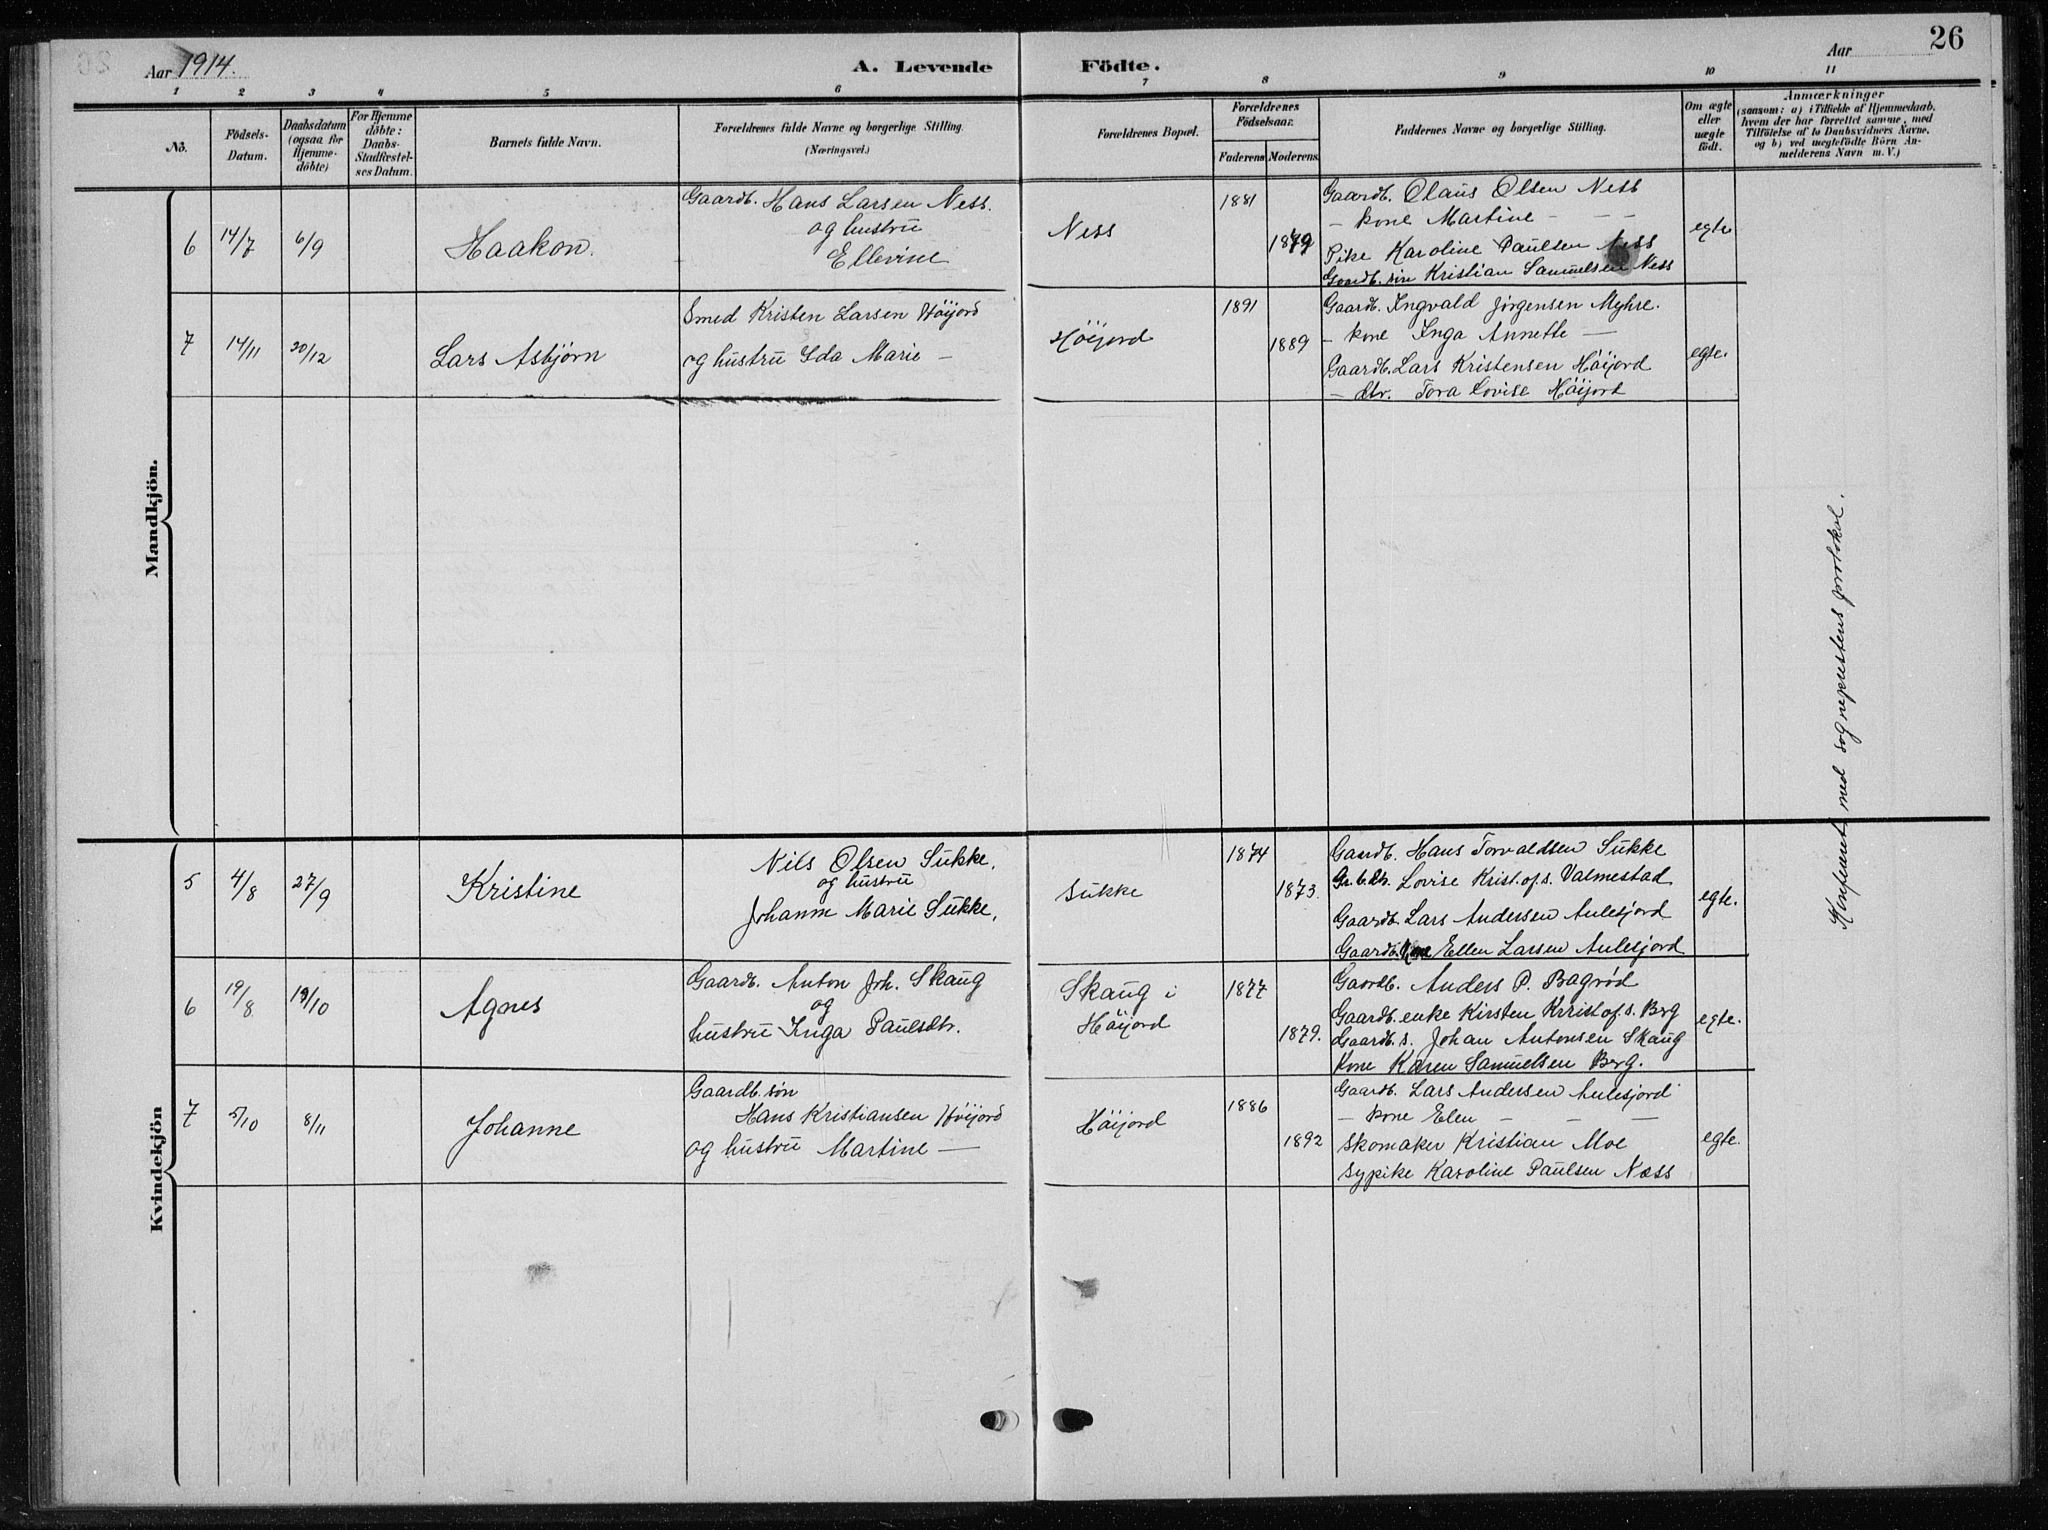 Aar 1914.
A. Levende Födte.
Aar
26
1 2 3 4 5 6 7 8 9 10 11
No.
Födsels-
Datum.
Daabsdatum
(ogsaa for
Hjemme-
döbte)
For Hjemme
döbte:
Daabs-
Stadfæstel-
ses Datum.
Barnets fulde Navn.
Forældrenes fulde Navne og borgerlige Stilling.
(Næringsvei.)
Forældrenes Bopæl.
Forældrenes
Födselsaar.
Faderens Moderens
Faddernes Navne og borgerlige Stilling.
Om ægte
eller
uægte
födt.
Anmærkninger
(saasom: a) i Tilfælde af Hjemmedaab.
hvem der har forrettet samme, med
Tilföielse af to Daabsvidners Navne.
og b) ved uægtefödte Börn An-
melderens Navn m. V.)
Mandkjön.
6 14/7 6/9
Haakon.
Gaardb. Hans Larsen Ness.
og hustru
Ellevine
Ness
1881
1879
Gaardb. Olaus Olsen Ness
— kone Martine — — —
Pike Karoline Paulsen Ness
Gaardb. søn Kristian Samuelsen Ness
egte
7 14/11 20/12
Lars Asbjörn
Smed Kristen Larsen Höijord
og hustru Ida Marie —
Höijord
1891
1889
Gaardb. Ingvald Jörgensen Myhre.
— kone Inga Annette —
Gaardb. Lars Kristensen Höijord
— dtr. Tora Lovise Höijord
egte.
Kvindekjön
5 4/8 27/9
Kristine
Nils Olsen Sukke,
og hustru
Johanne Marie Sukke,
Sukke
1874
1873.
Gaardb. Hans Torvaldsen Sukke
Gr.b.dtr. Lovise Krist.of.s. Valmestad
Gaardb. Lars Andersen Aulesjord
Gaardb. kone Ellen Larsen Aulesjord
egte.
6 19/8 19/10
Agnes
Gaardb. Anton Joh. Skaug
og
hustru Inga Paulsdtr.
Skaug i
Höijord
1877
1879.
Gaardb. Anders P. Bagrød
Gaardb. enke Kirsten Kristof.s. Berg
Gaardb. s. Johan Antonsen Skaug
Kone Karen Samuelsen Berg.
egte.
7 5/10 8/11
Johanne
Gaardb. søn
Hans Kristiansen Höijord
og hustru Martine —
Höijord
1886
1892
Gaardb. Lars Andersen Aulesjord
— kone Elen — — —
Skomaker Kristian Moe
Sypike Karoline Paulsen Næss
egte.
Konfereret med sogneprestens protokol.